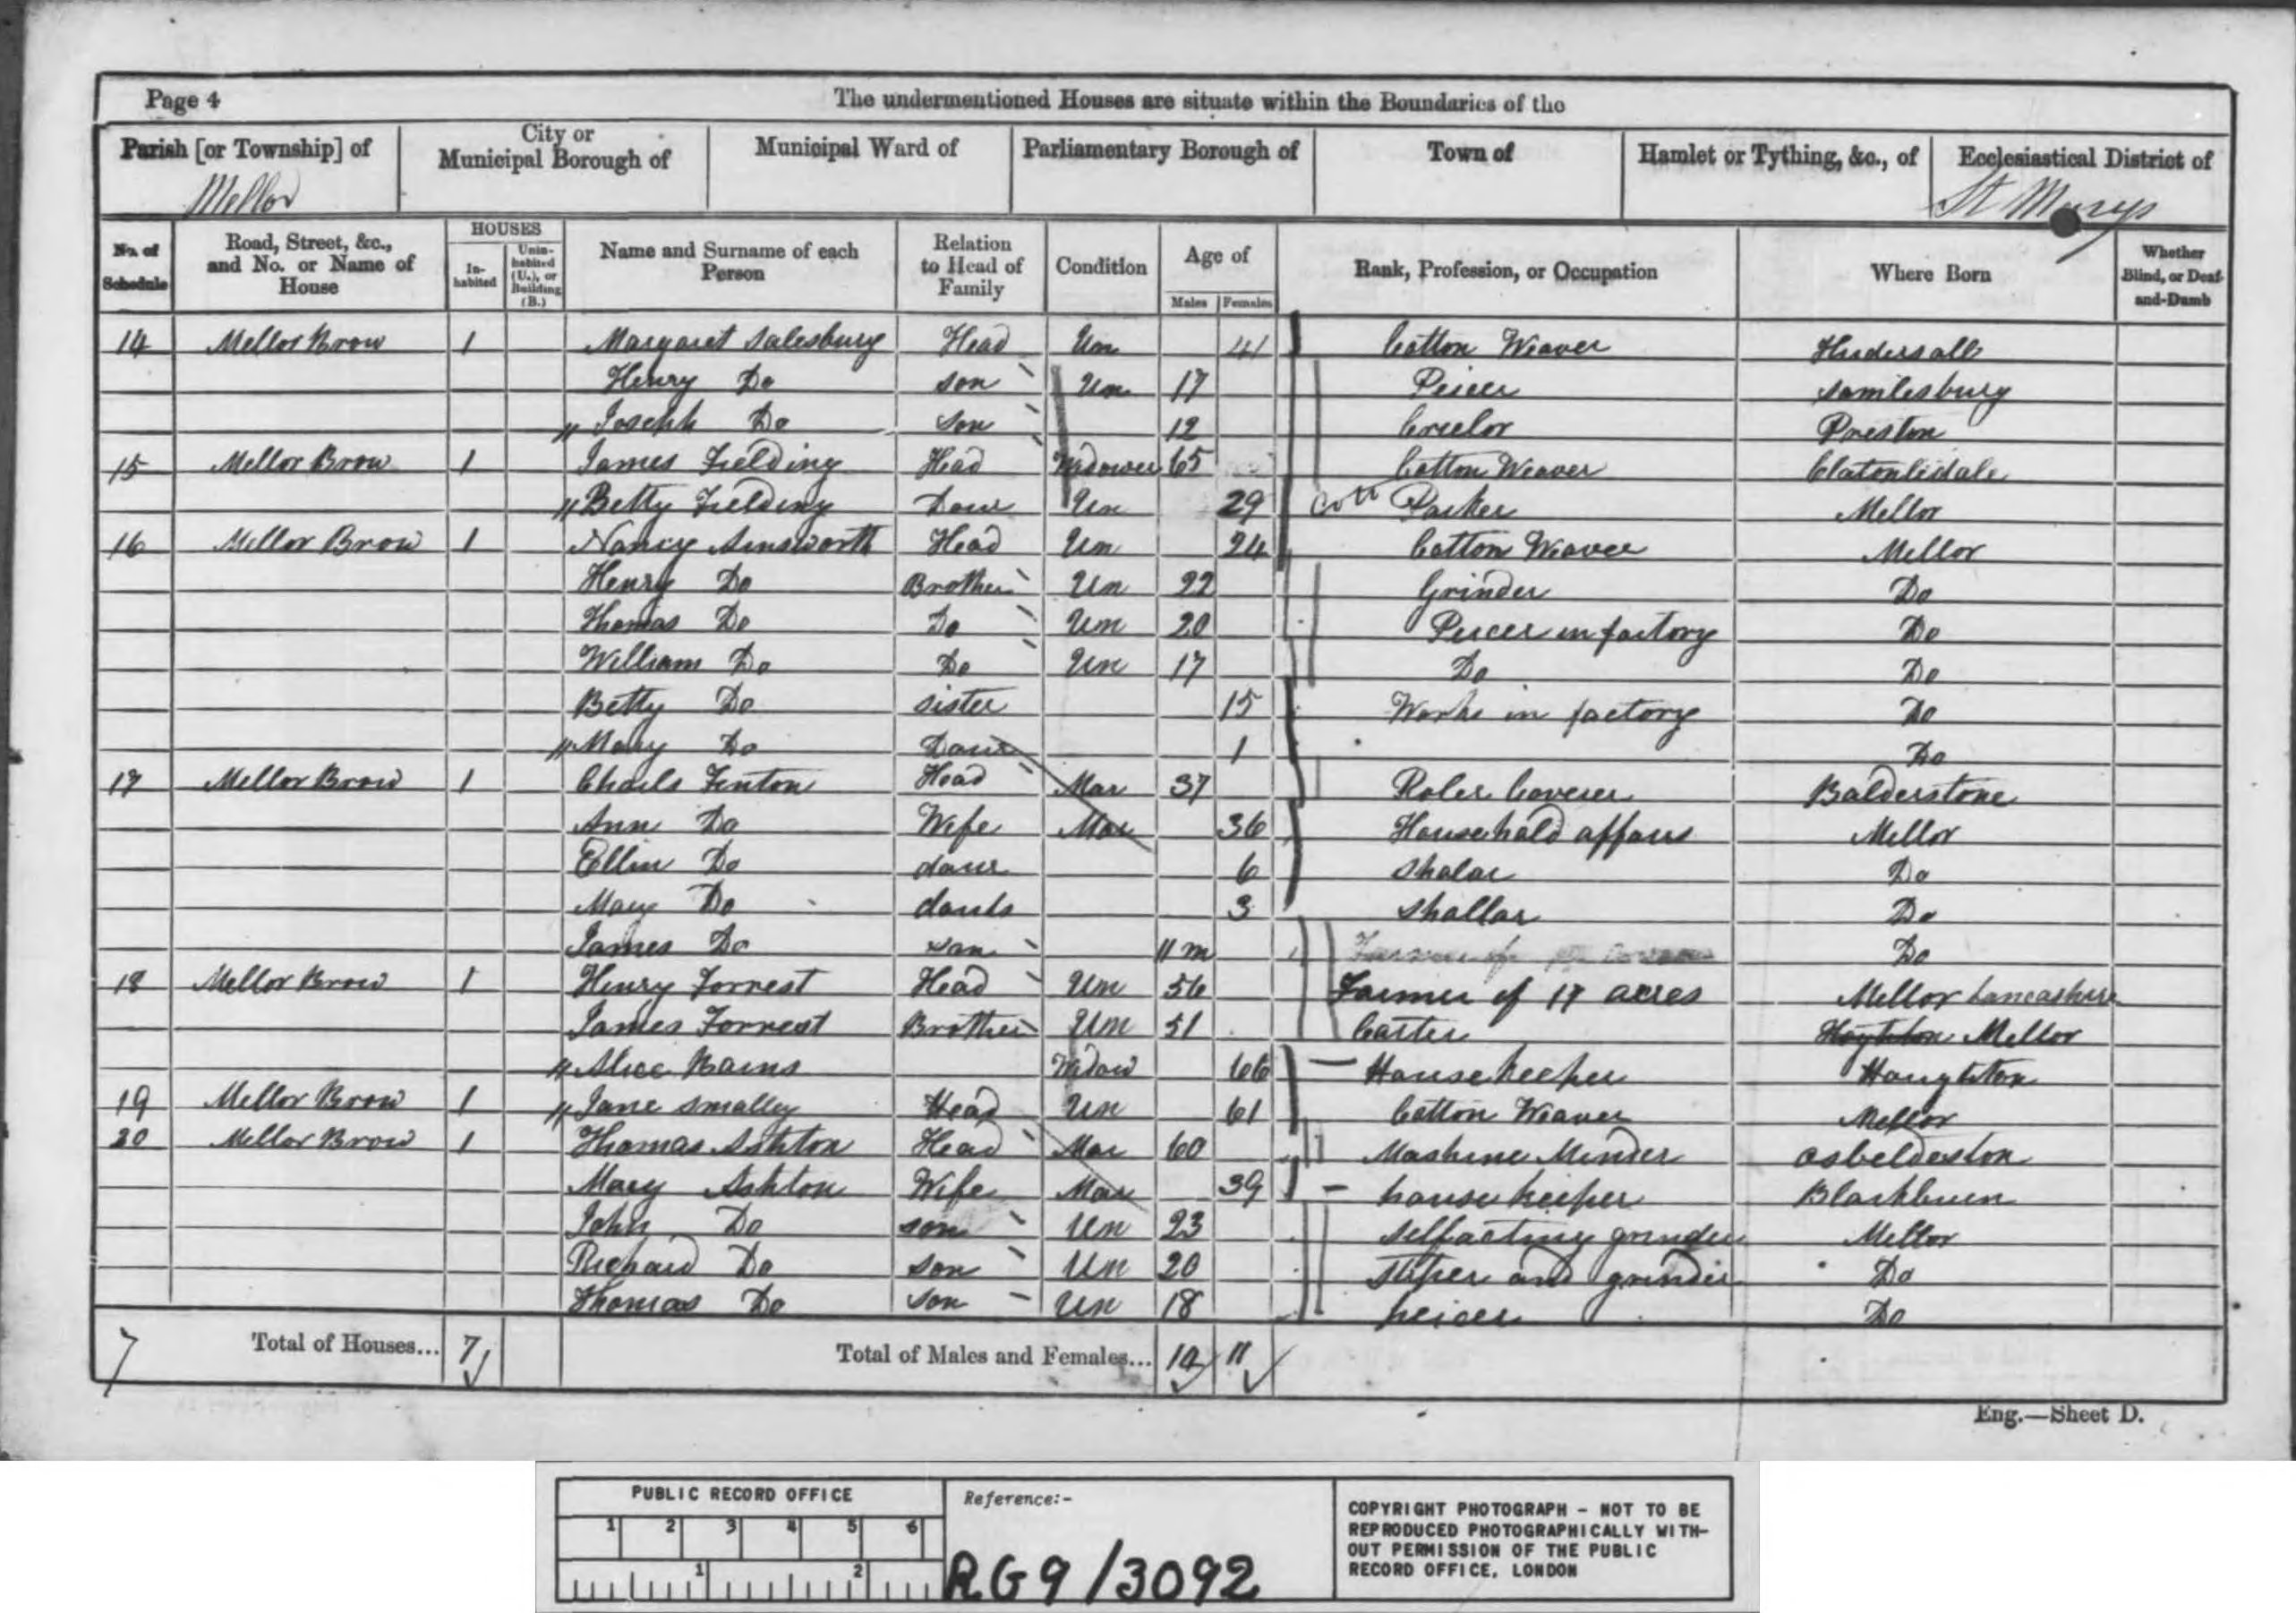 Page 4 The undermentioned Houses are situate within the Boundaries of the
Parish [or Township] of City or Municipal Borough of Municipal Ward of Parliamentary Borough of Town of Hamlet or Tything, &c., of Ecclesiastical District of
Mellor St Marys
No. of Schedule Road, Street, &c., and No. or Name of House HOUSES Inhabited Uninhabited (U.), or Building (B.) Name and Surname of each Person Relation to Head of Family Condition Age of Males Females Rank, Profession, or Occupation Where Born Whether Blind, or Deaf-and-Dumb
14 Mellor Brow 1 Margaret Salesbury Head Un 41 Cotton Weaver Hudersall
Henry Do son Un 17 Peicer Samlesbury
" Joseph Do son 12 Preston
15 Mellor Brow 1 James Fielding Head Widower 65 Cotton Weaver
" Betty Fielding Daur Un 29 Cott Packer Mellor
16 Mellor Brow 1 Nancy Ainsworth Head Un 24 Cotton Weaver Mellor
Henry Do Brother Un 22 Grinder Do
Thomas Do Do Un 20 Peicer in factory Do
William Do Do Un 17 Do Do
Betty Do sister 15 Works in factory Do
" Mary Do Daur 1 Do
17 Mellor Brow 1 Charls Fenton Head Mar 37 Roler Coverer Balderstone
Ann Do Wife Mar 36 Household affairs Mellor
Ellin Do daur 6 Shalar Do
Mary Do 3 Shallar Do
James Do son 11 m Do
18 Mellor Brow 1 Henry Forrest Head Un 56 Farmer of 17 acres Mellor Lancashire
James Forrest Brother Un 51 Carter Hoghton Mellor
" Alice Bains Widow 66 House keeper Houghton
19 Mellor Brow 1 " Jane Smalley Head Un 61 Cotton Weaver Mellor
20 Mellor Brow 1 Thomas Ashton Head Mar 60 Mashine Minder Osbeldeston
Mary Ashton Wife Mar 39 house keeper Blackburn
John Do son Un 23 selfacting grinder Mellor
Richard Do son Un 20 and grinder Do
Thomas Do son Un 18 peicer Do
7 Total of Houses... 7 Total of Males and Females... 14 11
Eng.—Sheet D.
PUBLIC RECORD OFFICE
1 2 3 4 5 6
1 2
Reference:-
RG9/3092
COPYRIGHT PHOTOGRAPH - NOT TO BE
REPRODUCED PHOTOGRAPHICALLY WITH-
OUT PERMISSION OF THE PUBLIC
RECORD OFFICE, LONDON